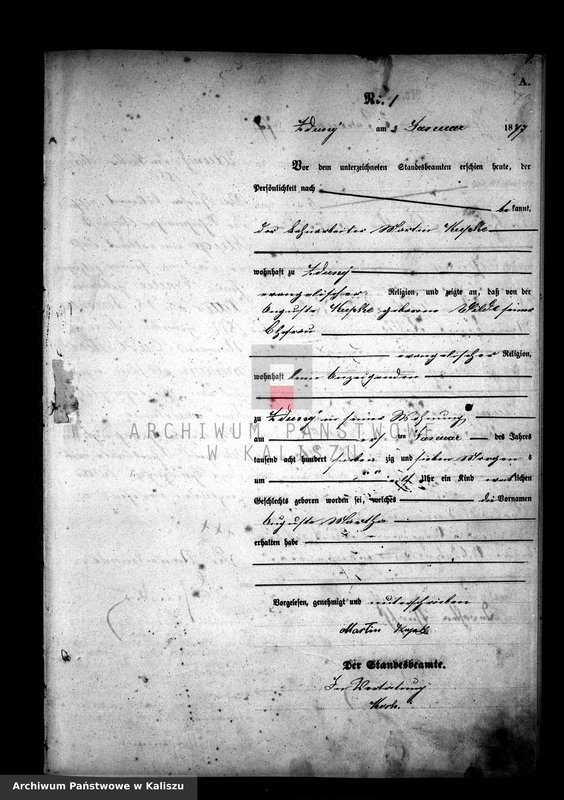 A.
Nr. 1
Zduny am 2 Januar 1877
Vor dem unterzeichneten Standesbeamten erschien heute, der
Persönlichkeit nach
bekannt,
der Bahnarbeiter Martin Kupke
wohnhaft zu Zduny
evangelischer Religion, und zeigte an, daß von der
Auguste Kupke geborene seiner
Ehefrau
evangelischer Religion,
wohnhaft beim Anzeigenden
zu Zduny in seiner Wohnung
am ten Januar des Jahres
tausend acht hundert sieben zig und sieben Morgens
um Uhr ein Kind weiblichen
Geschlechts geboren worden sei, welches die Vornamen
Auguste Martha
erhalten habe
Vorgelesen, genehmigt und unterschrieben
Martin Kupke
Der Standesbeamte.
In Vertretung
ARCHIWUM PAŃSTWOWE
W KALISZU
Archiwum Państwowe w Kaliszu